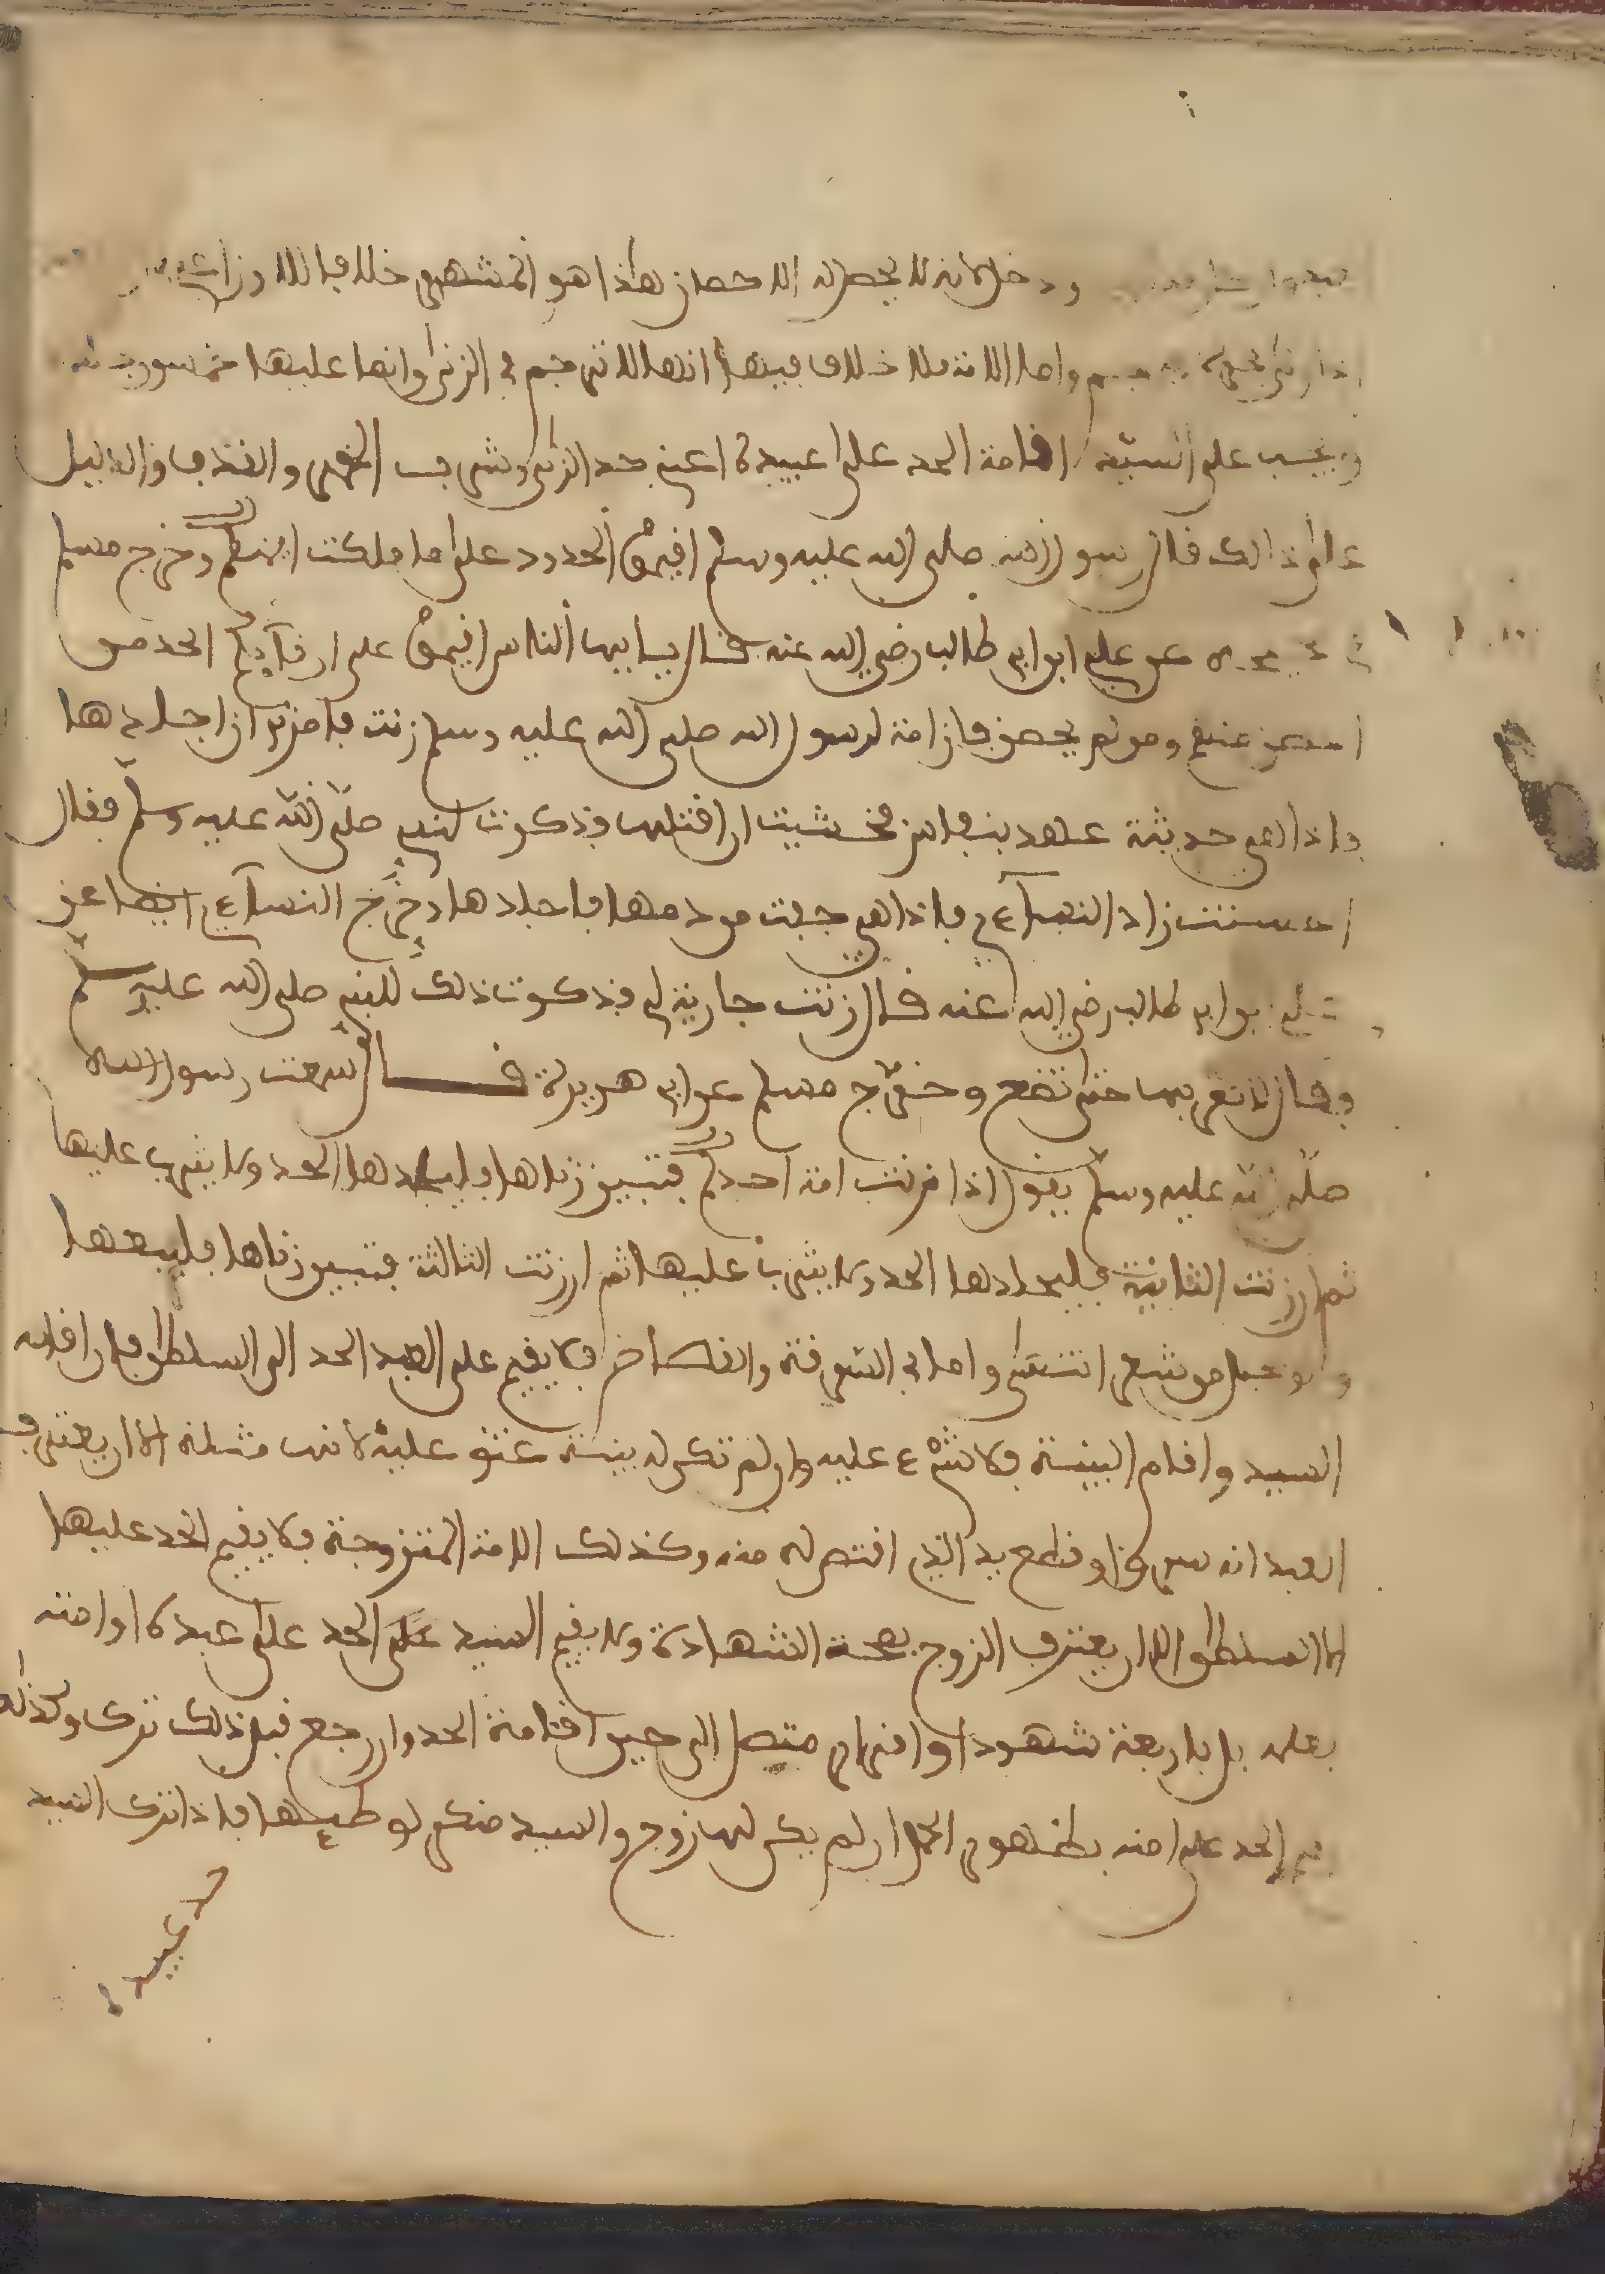 ودخل لانه لا يحصل له الاحصان هاذا هو المشهور خلافا للاوزاعي
اذا زنى بحرة واما الامة فلا خلاف فيها انها لا ترجم في الزنى وانما عليها خمسون جلدة
ويجب على السيد اقامة الحد على عبيده اعني حد الزنى وشرب الخمر والقذف والدليل
على ذالك قال رسول الله صلى الله عليه وسلم اقيموا الحدود على ما ملكت ايمنكم وخرج مسلم
عن علي ابن ابي طالب رضي الله عنه قال يا ايها الناس اقيموا على ارقآيكم الحد من
احصن منهم ومن لم يحصن فان امة لرسول الله صلى الله عليه وسلم زنت فامرني ان اجلدها
فاذا هي حديثة عهد بنفاس فخشيت ان اقتلها فذكرت للنبي صلى الله عليه وسلم فقال
احسنت زاد النسآءي فاذا هي جبت من دمها فاجلدها وخرج النسآءي ايضا عن
علي بن ابي طالب رضي الله عنه قال زنت جارية لي فذكرت ذلك للنبي صلى الله عليه وسلم
فقال لا تقربها حتى تضع وخرج مسلم عن ابي هريرة قال سمعت رسول الله
صلى الله عليه وسلم يقول اذا زنت امة احدكم فتبين زناها فليجلدها الحد ولا يثرب عليها
ثم ان زنت الثانية فليجلدها الحد ولا يثرب عليها ثم ان زنت الثالثة فتبين زناها فليبعها
ولو بحبل من شعر انتهى واما في السرقة والقصاص فلا يقيم على العبد الحد الى السلطان فان اقامه
السيد واقام البينة فلا شيء عليه وان لم تكن له بينة عتق عليه لانها مثلة الا ان يعترف
العبد انه سرق او قطع يد الذي اقتص له منه وكذلك الامة المتزوجة فلا يقيم الحد عليها
الا السلطان الا ان يعترف الزوج بصحة الشهادة ولا يقيم السيد على الحد على عبده او امته
بعلمه بل باربعة شهود او اقرار متصل الى حين اقامة الحد وان رجع قبل ذلك ترك وكذلك
يقيم الحد على امته بظهور الحمل ان لم يكن لها زوج والسيد منكر لوطيها فاذا ترك السيد
حد عبيده